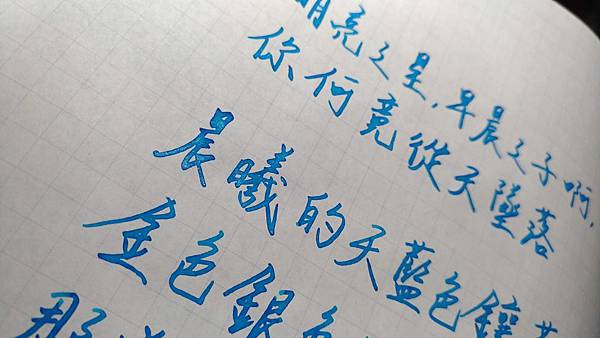 明亮之星,早晨之子啊,
你何竟從天墜落
晨曦的天藍色鑲
金色銀色
那